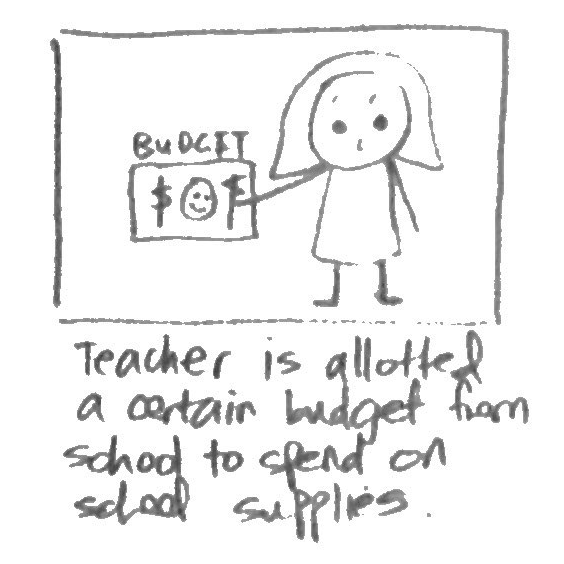 BUDGET
$ $
Teacher is allotted
a certain budget from
school to spend on
school supplies.